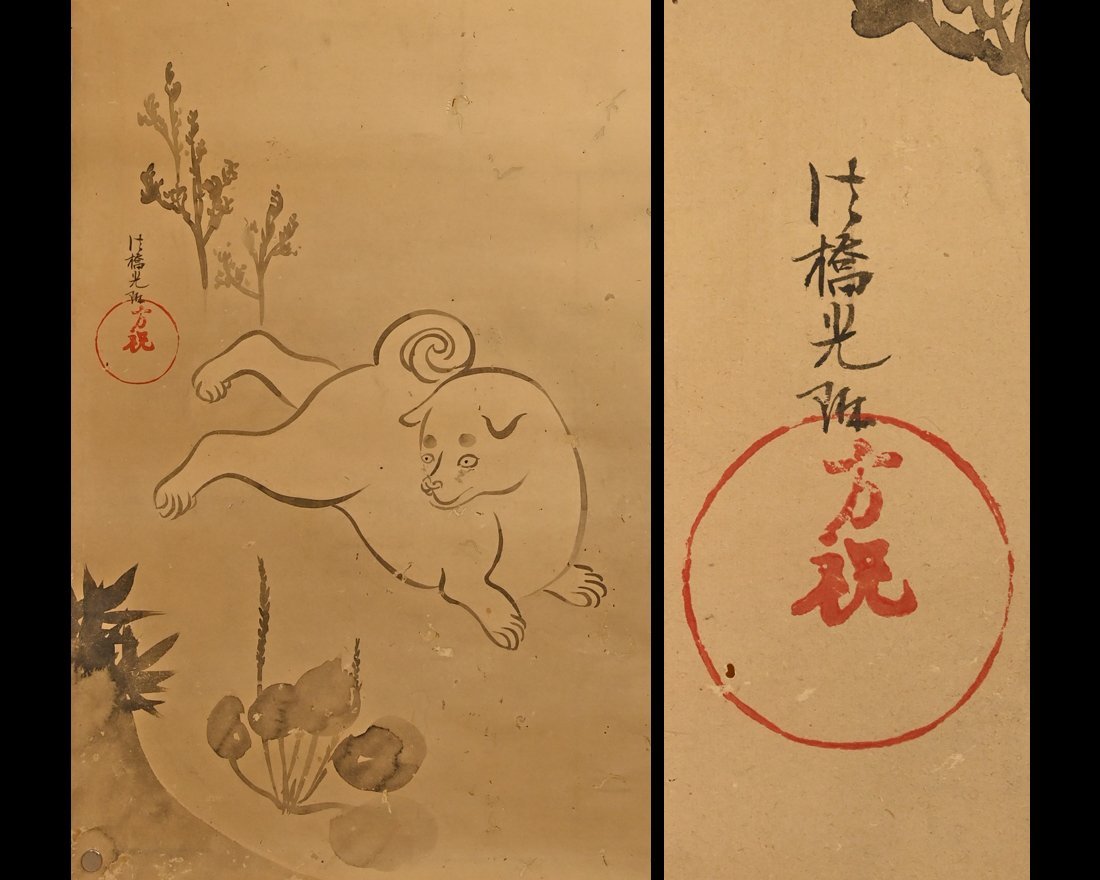 法橋光琳
方祝
法橋光琳
方祝